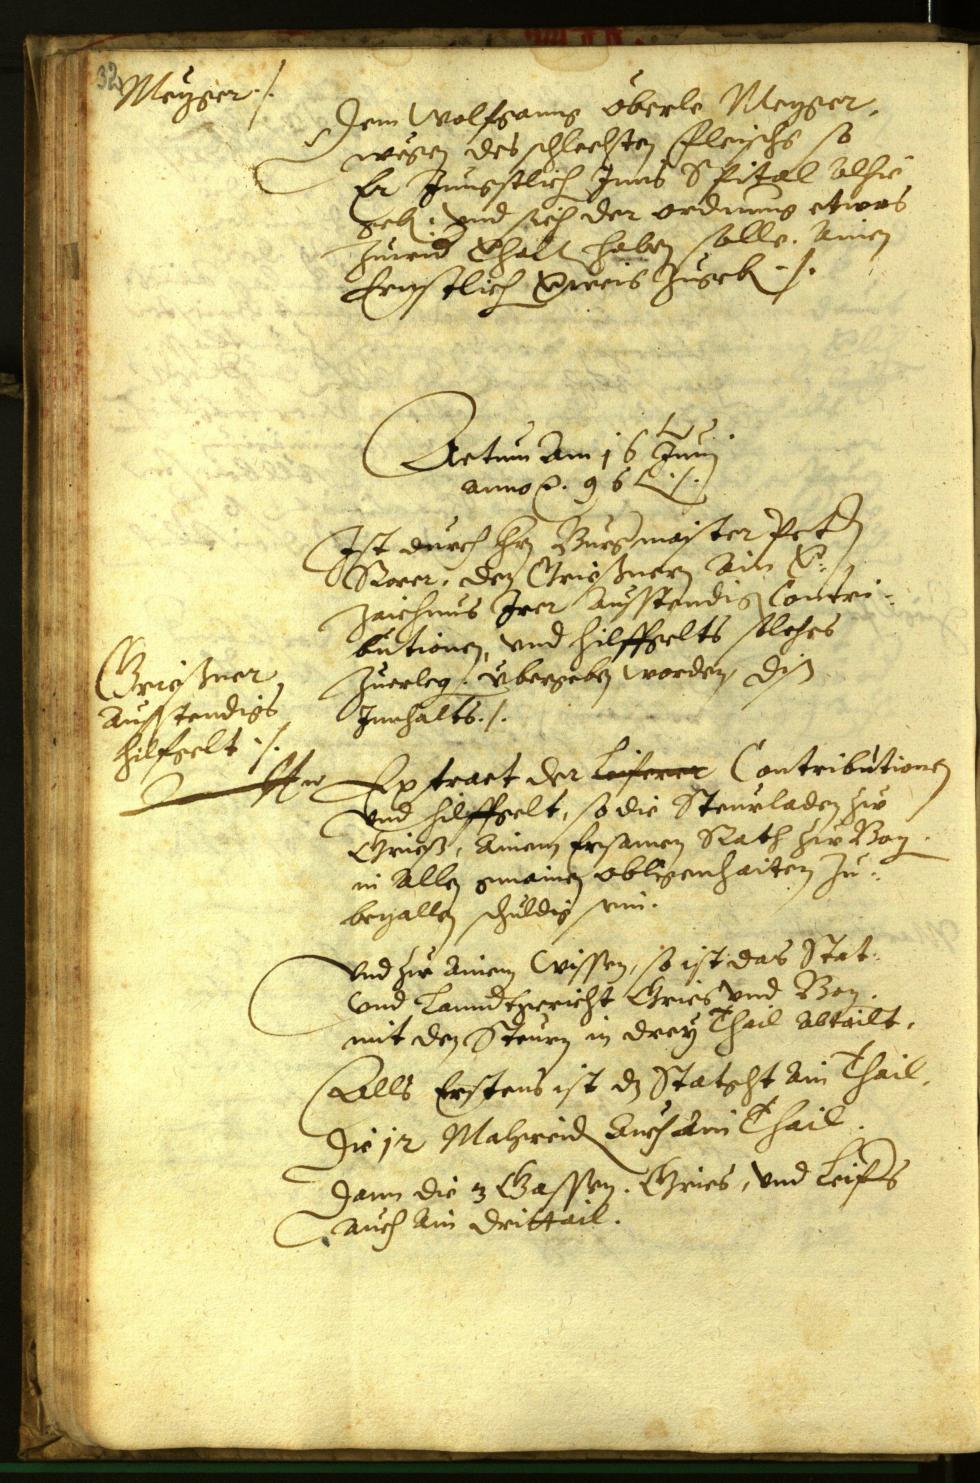 32
Meyger ./.
Dem Wolfgang Öberle Meyger,
wegen des schlechten fleischs so
Er Jungstlich Inns Spital alhie
geb: und sich der ordnung etwas
zuwid verhalt haben solle. Ainen
Ernstlich verweis zugeb ./.
Actum Am 16 Junj
anno d. 96 ./.
Ist durch hrn Burgmaister Peter
Rorer, den Griessnern Ain ver:
zaichnus Irer ausstendig Contri-
butionen, und hilffgelts solches
zuerleg. ubergeben worden, diss
Innhalts ./.
Griessner
ausstendigs
hilfgelt ./.
Extract der Leiferer Contributionen
und hilffgelt, so die Steurladen zu
Griess, Ainem Ersamen Rath zu Bozn.
in allen gmainen obligenhaiten Zu-
bezallen schuldig sein.
Und zu ainem wissen, so ist das Stat:
und Lanndtgericht Gries und Bozn.
mit den Steurn in drey Thail abtailt.
Alls Erstens ist dz Statgeht Ain Thail.
Die 12 Malgreid Auch Ain Thail.
Dann die 3 Gassen. Gries, und Leifs
auch Ain drittail.